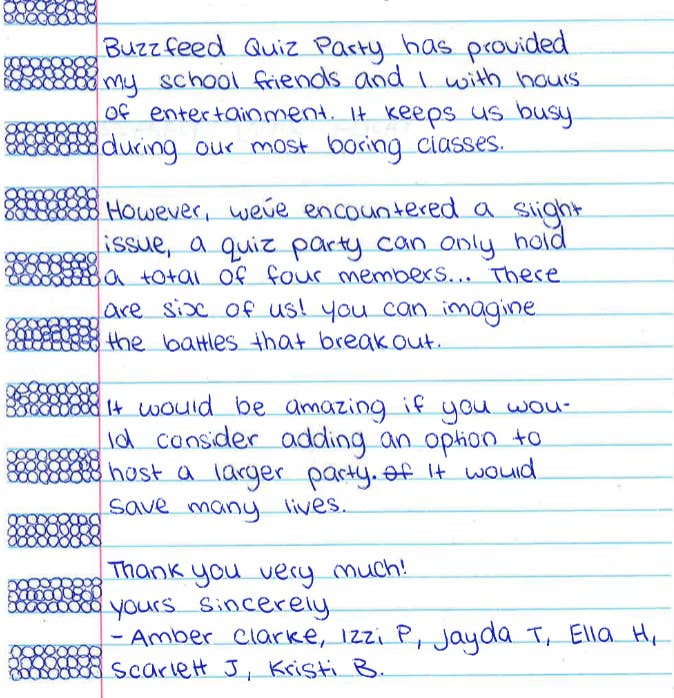 Buzzfeed Quiz Party has provided
my school friends and I with hours
of entertainment. It keeps us busy
during our most boring classes.
However, we've encountered a slight
issue, a quiz party can only hold
a total of four members... There
are six of us! you can imagine
the battles that breakout.
It would be amazing if you wou-
ld consider adding an option to
host a larger party. of It would
save many lives.
Thank you very much!
yours sincerely
- Amber Clarke, Izzi P, Jayda T, Ella H,
Scarlett J, Kristi B.